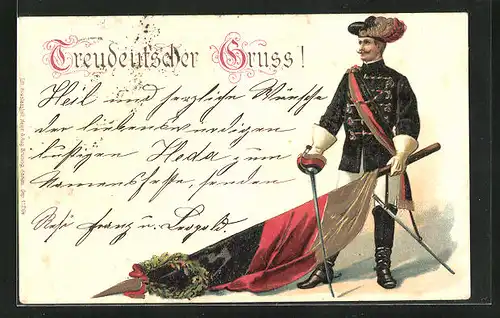 Treudeutscher Gruss!
Heil und herzliche Wünsche
der liebenswürdigen
lustigen Heda zum
Namensfeste, senden
Resi Franz u. Leopold.